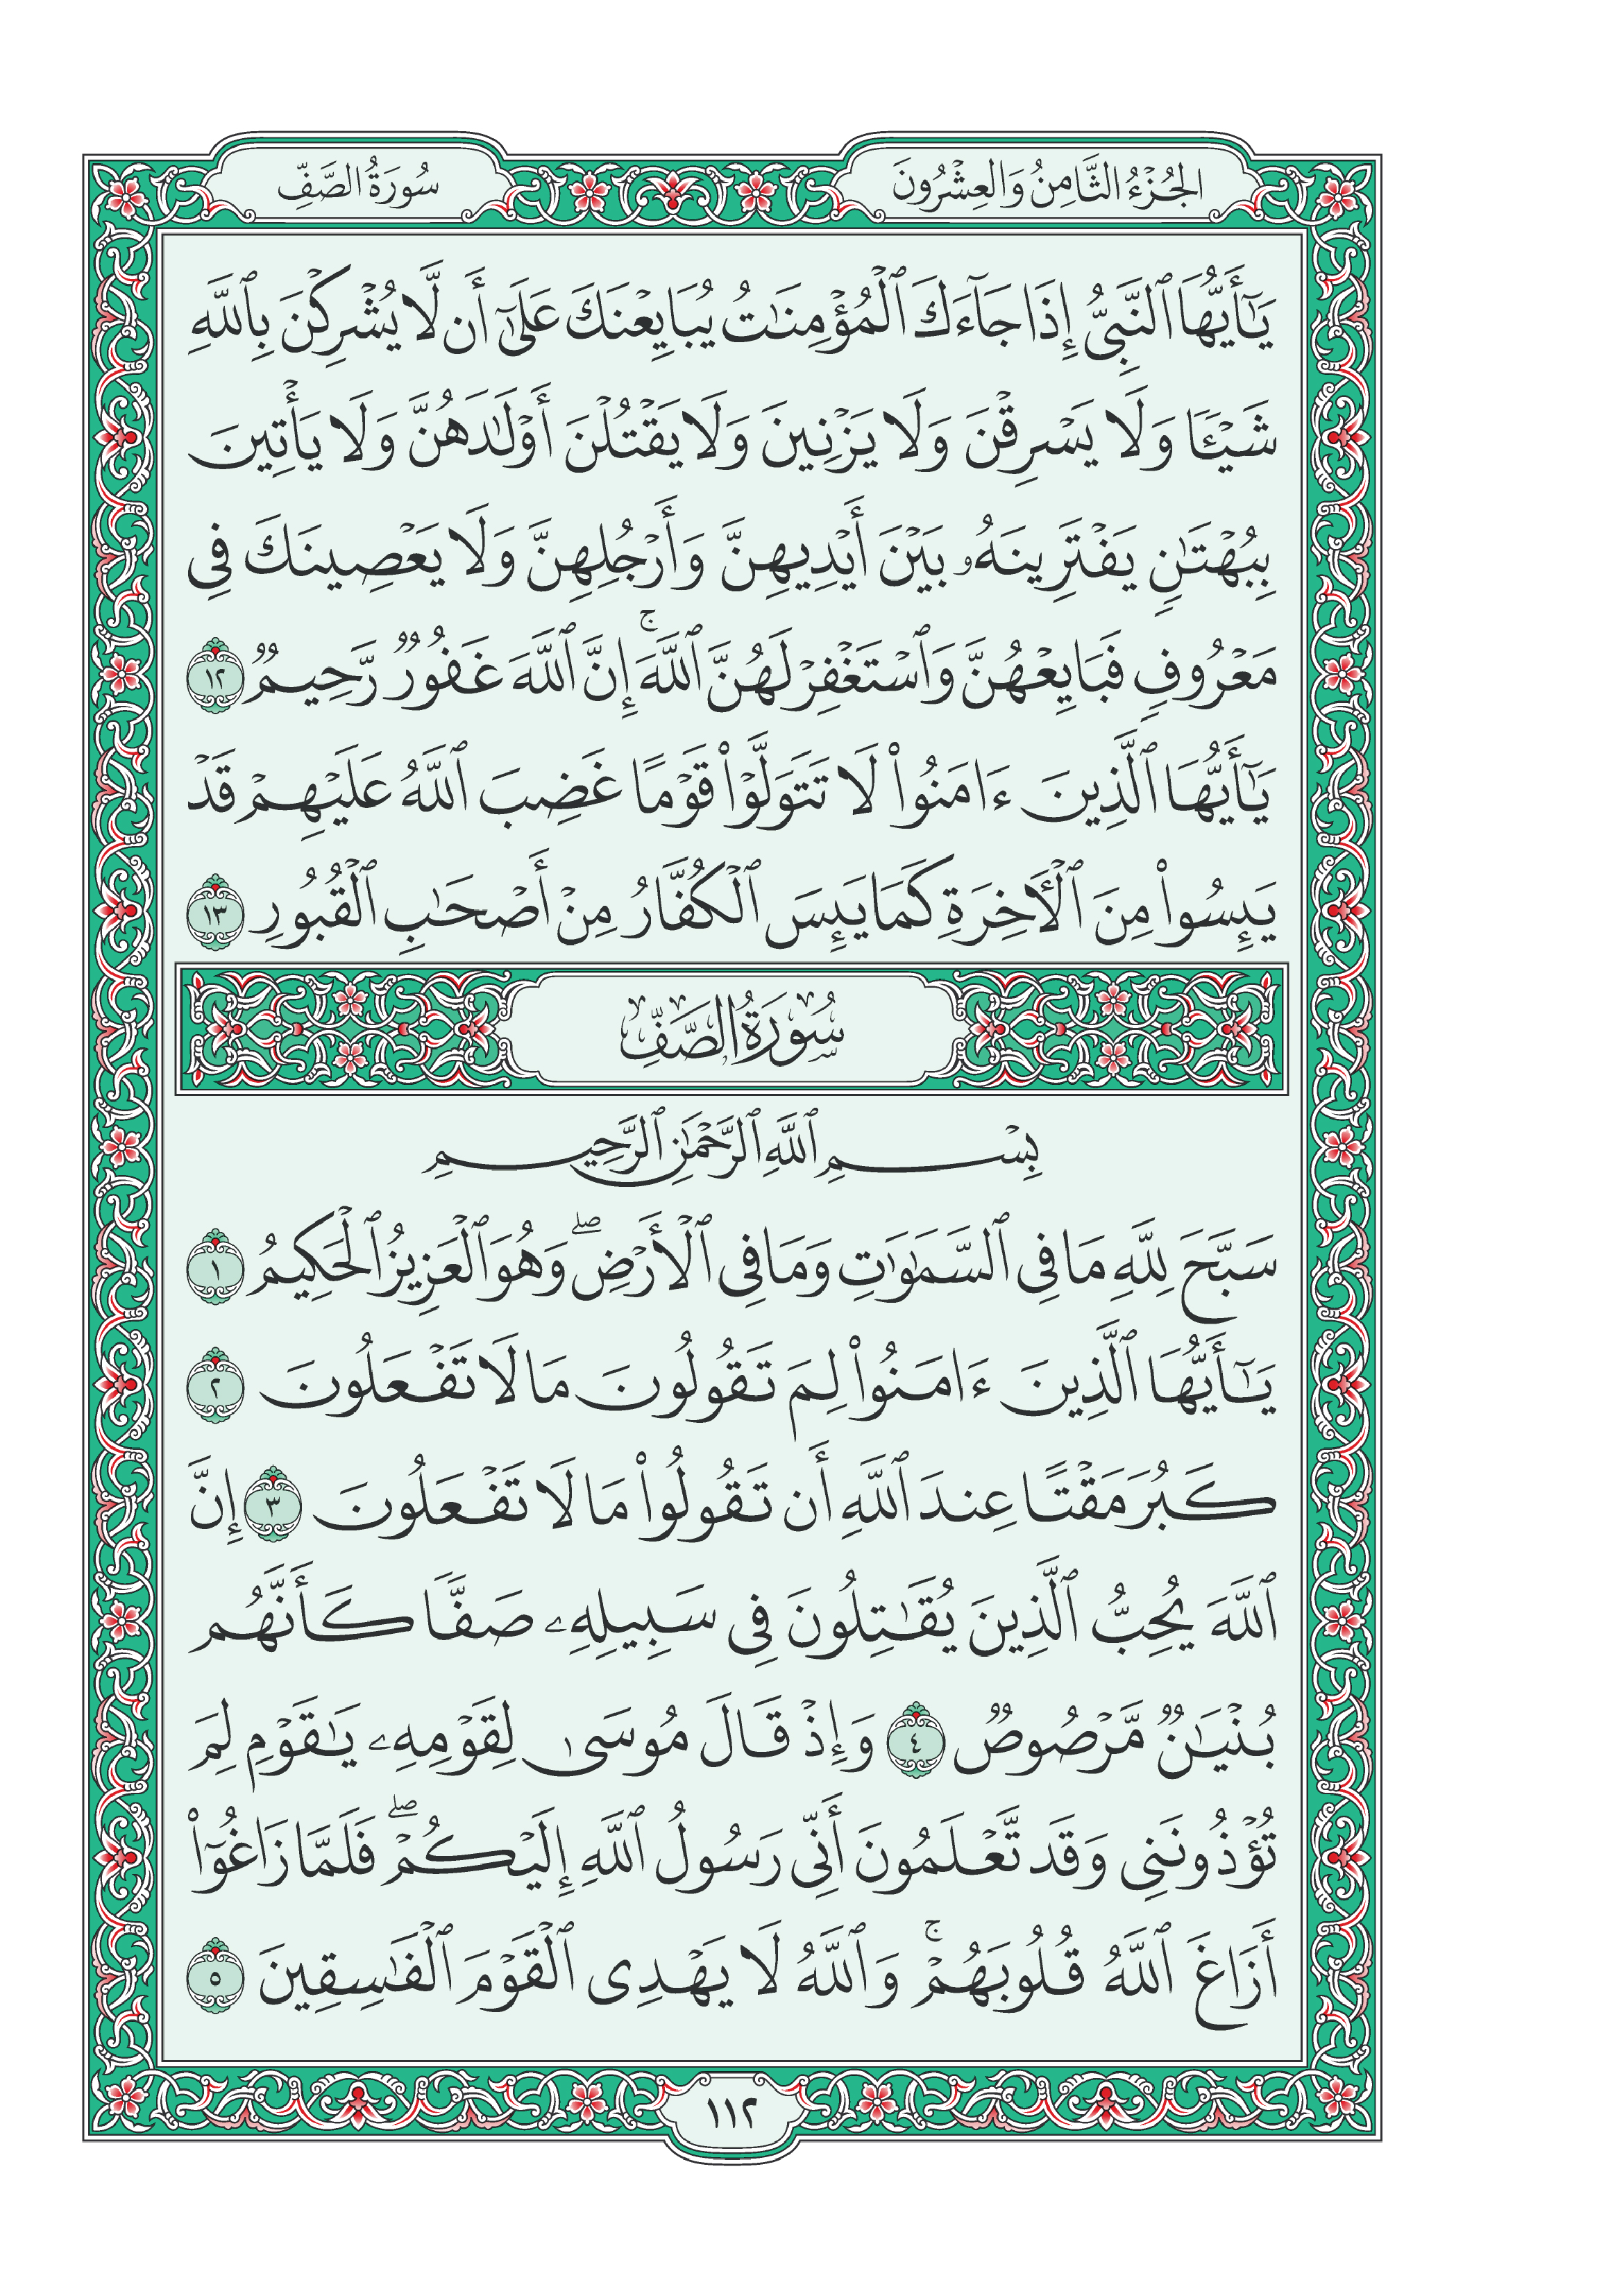 الجُزْءُ الثَّامِنُ وَالعِشْرُونَ
سُورَةُ الصَّفِّ
يَٰٓأَيُّهَا ٱلنَّبِيُّ إِذَا جَآءَكَ ٱلْمُؤْمِنَٰتُ يُبَايِعْنَكَ عَلَىٰٓ أَن لَّا يُشْرِكْنَ بِٱللَّهِ
شَيْـًٔا وَلَا يَسْرِقْنَ وَلَا يَزْنِينَ وَلَا يَقْتُلْنَ أَوْلَٰدَهُنَّ وَلَا يَأْتِينَ
بِبُهْتَٰنٍ يَفْتَرِينَهُۥ بَيْنَ أَيْدِيهِنَّ وَأَرْجُلِهِنَّ وَلَا يَعْصِينَكَ فِى
مَعْرُوفٍ فَبَايِعْهُنَّ وَٱسْتَغْفِرْ لَهُنَّ ٱللَّهَ ۚ إِنَّ ٱللَّهَ غَفُورٌ رَّحِيمٌ ١٢
يَٰٓأَيُّهَا ٱلَّذِينَ ءَامَنُوا۟ لَا تَتَوَلَّوْا۟ قَوْمًا غَضِبَ ٱللَّهُ عَلَيْهِمْ قَدْ
يَئِسُوا۟ مِنَ ٱلْـَٔاخِرَةِ كَمَا يَئِسَ ٱلْكُفَّارُ مِنْ أَصْحَٰبِ ٱلْقُبُورِ ١٣
سُورَةُ الصَّفِّ
بِسْمِ ٱللَّهِ ٱلرَّحْمَٰنِ ٱلرَّحِيمِ
سَبَّحَ لِلَّهِ مَا فِى ٱلسَّمَٰوَٰتِ وَمَا فِى ٱلْأَرْضِ ۖ وَهُوَ ٱلْعَزِيزُ ٱلْحَكِيمُ ١
يَٰٓأَيُّهَا ٱلَّذِينَ ءَامَنُوا۟ لِمَ تَقُولُونَ مَا لَا تَفْعَلُونَ ٢
كَبُرَ مَقْتًا عِندَ ٱللَّهِ أَن تَقُولُوا۟ مَا لَا تَفْعَلُونَ ٣ إِنَّ
ٱللَّهَ يُحِبُّ ٱلَّذِينَ يُقَٰتِلُونَ فِى سَبِيلِهِۦ صَفًّا كَأَنَّهُم
بُنْيَٰنٌ مَّرْصُوصٌ ٤ وَإِذْ قَالَ مُوسَىٰ لِقَوْمِهِۦ يَٰقَوْمِ لِمَ
تُؤْذُونَنِى وَقَد تَّعْلَمُونَ أَنِّى رَسُولُ ٱللَّهِ إِلَيْكُمْ ۖ فَلَمَّا زَاغُوٓا۟
أَزَاغَ ٱللَّهُ قُلُوبَهُمْ ۚ وَٱللَّهُ لَا يَهْدِى ٱلْقَوْمَ ٱلْفَٰسِقِينَ ٥
١١٢